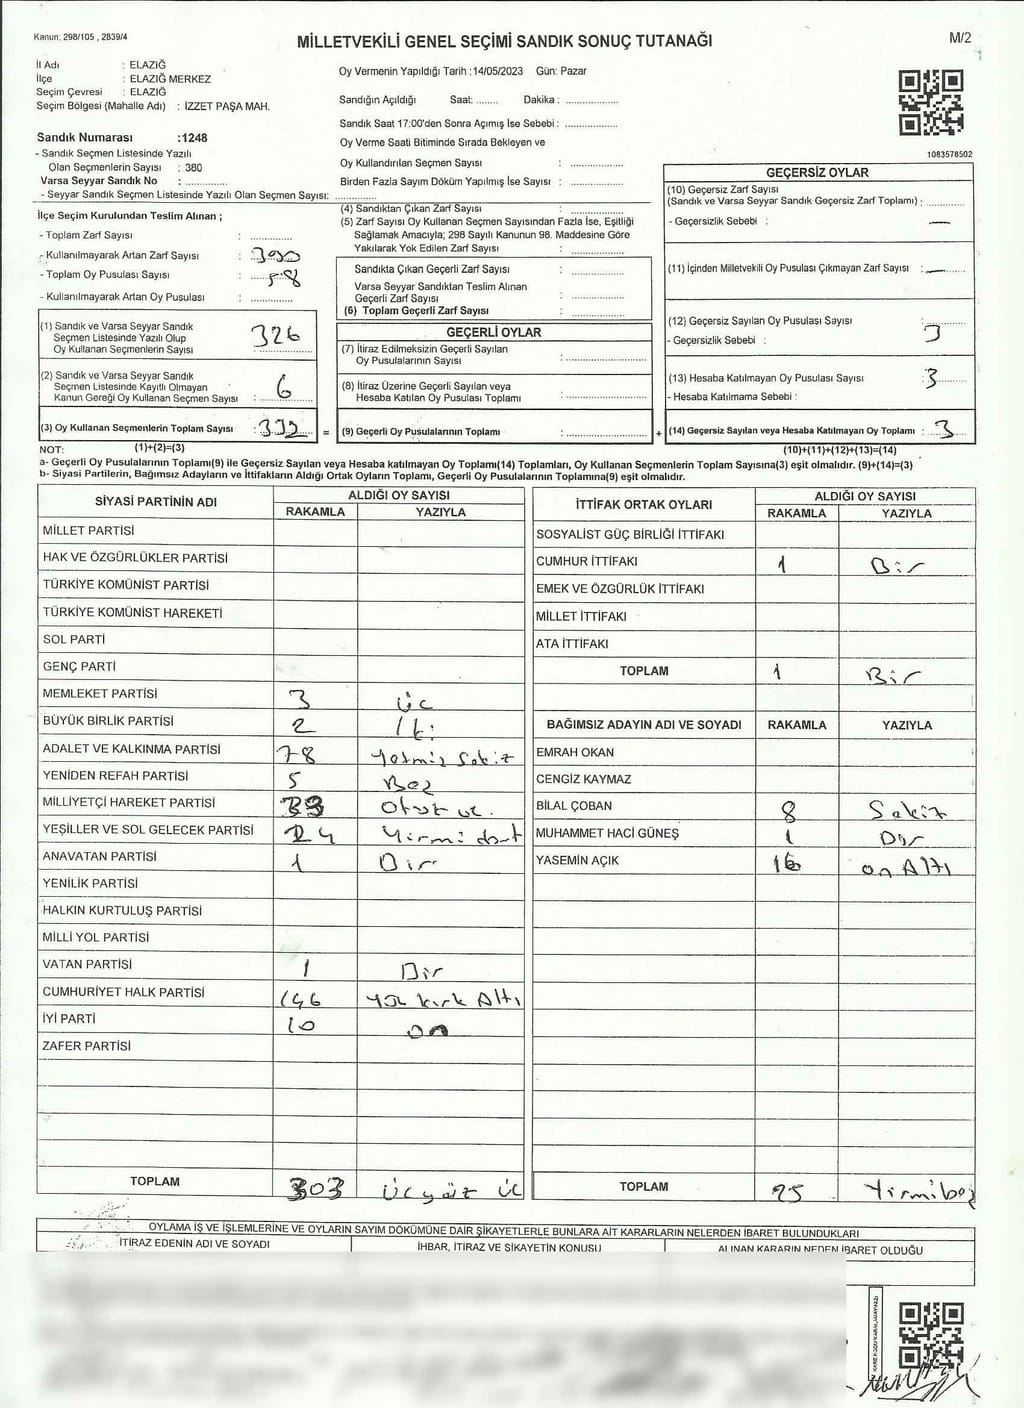 Kanun: 298/105 , 2839/4
MİLLETVEKİLİ GENEL SEÇİMİ SANDIK SONUÇ TUTANAĞI
M/2
İl Adı : ELAZIĞ
İlçe : ELAZIĞ MERKEZ
Seçim Çevresi : ELAZIĞ
Seçim Bölgesi (Mahalle Adı) : İZZET PAŞA MAH.
Sandık Numarası :1248
- Sandık Seçmen Listesinde Yazılı
Olan Seçmenlerin Sayısı : 380
Varsa Seyyar Sandık No : ..............
- Seyyar Sandık Seçmen Listesinde Yazılı Olan Seçmen Sayısı: ..............
Oy Vermenin Yapıldığı Tarih :14/05/2023 Gün: Pazar
Sandığın Açıldığı Saat: ........ Dakika : ..............
Sandık Saat 17:00'den Sonra Açımış İse Sebebi : ..............
Oy Verme Saati Bitiminde Sırada Bekleyen ve
Oy Kullandırılan Seçmen Sayısı : ..............
Birden Fazla Sayım Döküm Yapılmış İse Sayısı : ..............
1083578502
İlçe Seçim Kurulundan Teslim Alınan ;
- Toplam Zarf Sayısı : ..............
- Kullanılmayarak Artan Zarf Sayısı :
- Toplam Oy Pusulası Sayısı : 58
- Kullanılmayarak Artan Oy Pusulası : ..............
(1) Sandık ve Varsa Seyyar Sandık
Seçmen Listesinde Yazılı Olup
Oy Kullanan Seçmenlerin Sayısı : 326
(2) Sandık ve Varsa Seyyar Sandık
Seçmen Listesinde Kayıtlı Olmayan
Kanun Gereği Oy Kullanan Seçmen Sayısı : 6
(3) Oy Kullanan Seçmenlerin Toplam Sayısı : 332 =
(4) Sandıktan Çıkan Zarf Sayısı : ..............
(5) Zarf Sayısı Oy Kullanan Seçmen Sayısından Fazla İse, Eşitliği
Sağlamak Amacıyla; 298 Sayılı Kanunun 98. Maddesine Göre
Yakılarak Yok Edilen Zarf Sayısı : ..............
Sandıkta Çıkan Geçerli Zarf Sayısı : ..............
Varsa Seyyar Sandıktan Teslim Alınan
Geçerli Zarf Sayısı : ..............
(6) Toplam Geçerli Zarf Sayısı : ..............
GEÇERLİ OYLAR
(7) İtiraz Edilmeksizin Geçerli Sayılan
Oy Pusulalarının Sayısı : ..............
(8) İtiraz Üzerine Geçerli Sayılan veya
Hesaba Katılan Oy Pusulaları Toplamı : ..............
(9) Geçerli Oy Pusulalarının Toplamı : .............. +
GEÇERSİZ OYLAR
(10) Geçersiz Zarf Sayısı
(Sandık ve Varsa Seyyar Sandık Geçersiz Zarf Toplamı) : ..............
- Geçersizlik Sebebi : —
(11) İçinden Milletvekili Oy Pusulası Çıkmayan Zarf Sayısı : —
(12) Geçersiz Sayılan Oy Pusulası Sayısı : 3
- Geçersizlik Sebebi :
(13) Hesaba Katılmayan Oy Pusulası Sayısı : 3
- Hesaba Katılmama Sebebi :
(14) Geçersiz Sayılan veya Hesaba Katılmayan Oy Toplamı : 3
NOT: (1)+(2)=(3) (10)+(11)+(12)+(13)=(14)
a- Geçerli Oy Pusulalarının Toplamı(9) ile Geçersiz Sayılan veya Hesaba katılmayan Oy Toplamı(14) Toplamları, Oy Kullanan Seçmenlerin Toplam Sayısına(3) eşit olmalıdır. (9)+(14)=(3)
b- Siyasi Partilerin, Bağımsız Adayların ve İttifakların Aldığı Ortak Oyların Toplamı, Geçerli Oy Pusulalarının Toplamına(9) eşit olmalıdır.
SİYASİ PARTİNİN ADI ALDIĞI OY SAYISI
RAKAMLA YAZIYLA
MİLLET PARTİSİ
HAK VE ÖZGÜRLÜKLER PARTİSİ
TÜRKİYE KOMÜNİST PARTİSİ
TÜRKİYE KOMÜNİST HAREKETİ
SOL PARTİ
GENÇ PARTİ
MEMLEKET PARTİSİ 3 üc
BÜYÜK BİRLİK PARTİSİ 2 İki
ADALET VE KALKINMA PARTİSİ 78 Yetmiş Sekiz
YENİDEN REFAH PARTİSİ 5 Beş
MİLLİYETÇİ HAREKET PARTİSİ 33 Otuz üc.
YEŞİLLER VE SOL GELECEK PARTİSİ 24 Yirmi dört
ANAVATAN PARTİSİ 1 Bir
YENİLİK PARTİSİ
HALKIN KURTULUŞ PARTİSİ
MİLLİ YOL PARTİSİ
VATAN PARTİSİ 1 Bir
CUMHURİYET HALK PARTİSİ 146 Yüz kırk Altı
İYİ PARTİ 10 on
ZAFER PARTİSİ
TOPLAM 303 Üçyüz üc
İTTİFAK ORTAK OYLARI ALDIĞI OY SAYISI
RAKAMLA YAZIYLA
SOSYALİST GÜÇ BİRLİĞİ İTTİFAKI
CUMHUR İTTİFAKI 1 Bir
EMEK VE ÖZGÜRLÜK İTTİFAKI
MİLLET İTTİFAKI
ATA İTTİFAKI
TOPLAM 1 Bir
BAĞIMSIZ ADAYIN ADI VE SOYADI RAKAMLA YAZIYLA
EMRAH OKAN
CENGİZ KAYMAZ
BİLAL ÇOBAN 8 Sekiz
MUHAMMET HACİ GÜNEŞ 1 Bir
YASEMİN AÇIK 16 on Altı
TOPLAM 25 Yirmibeş
OYLAMA İŞ VE İŞLEMLERİNE VE OYLARIN SAYIM DÖKÜMÜNE DAİR ŞİKAYETLERLE BUNLARA AİT KARARLARIN NELERDEN İBARET BULUNDUKLARI
İTİRAZ EDENİN ADI VE SOYADI İHBAR, İTİRAZ VE ŞİKAYETİN KONUSU ALINAN KARARIN NEDEN İBARET OLDUĞU